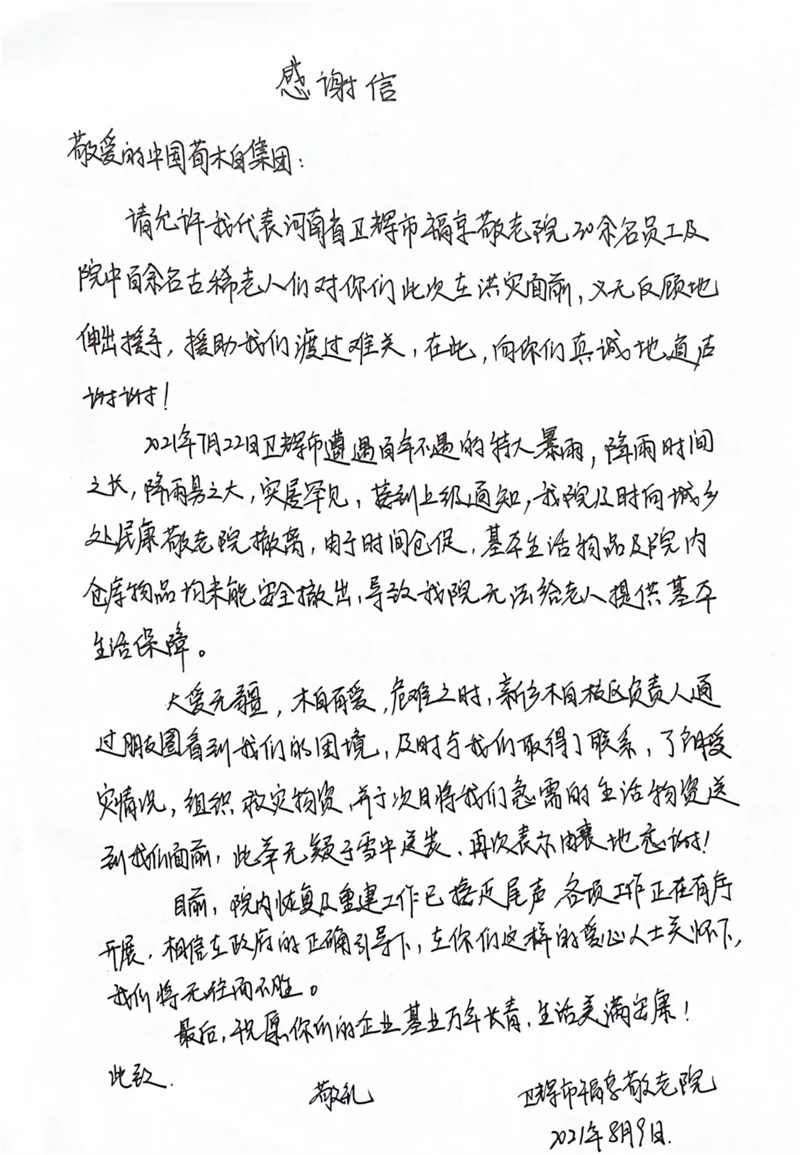 感谢信
敬爱的中国荀木自集团：
请允许我代表河南省卫辉市福享敬老院30余名员工及
院中百余名古稀老人们对你们此次在洪灾面前，义无反顾地
伸出援手，援助我们渡过难关，在此，向你们真诚地道声
谢谢！
2021年7月22日卫辉市遭遇百年不遇的特大暴雨，降雨时间
之长，降雨量之大，实属罕见，接到上级通知，我院及时向城乡
处民康敬老院撤离，由于时间仓促，基本生活物品及院内
仓库物品均未能安全撤出，导致我院无法给老人提供基本
生活保障。
大爱无疆，木自有爱，危难之时，新乡木自校区负责人通
过朋友圈看到我们的困境，及时与我们取得了联系，了解受
灾情况，组织救灾物资，并于次日将我们急需的生活物资送
到我们面前，此举无疑于雪中送炭、再次表示由衷地感谢！
目前，院内恢复及重建工作已接近尾声 各项工作正在有序
开展，相信在政府的正确引导下，在你们这样的爱心人士关怀下，
我们将无往而不胜。
最后，祝愿你们的企业基业万年长青，生活美满安康！
此致
敬礼
卫辉市福享敬老院
2021年8月9日.